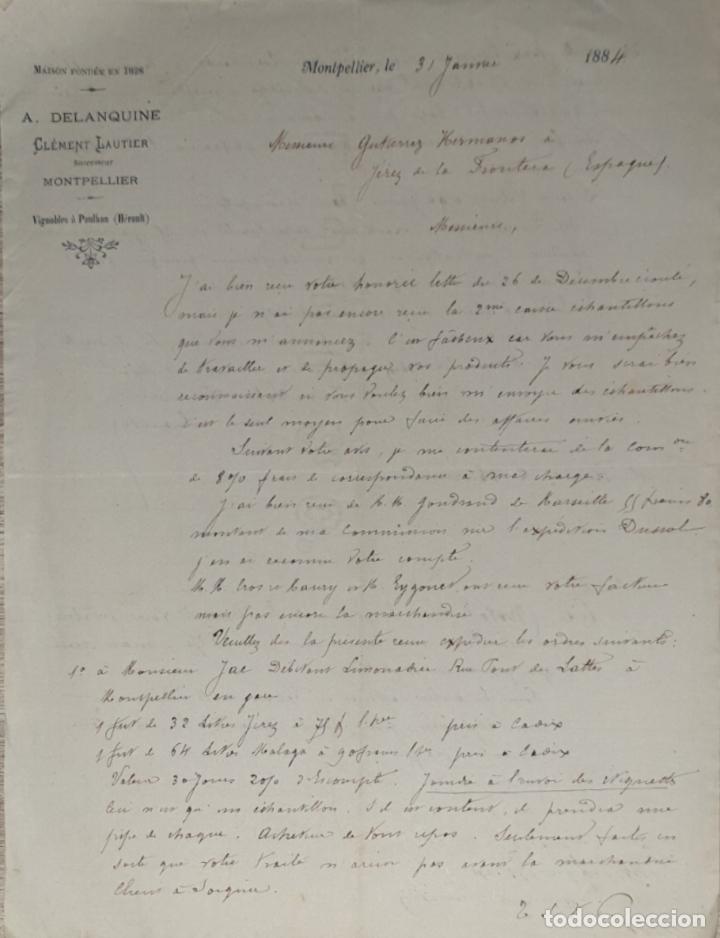 MAISON FONDÉE EN 1828
A. DELANQUINE
CLÉMENT LAUTIER
Successeur
MONTPELLIER
Vignobles à Paulhan (Hérault)
Montpellier, le 31 Janvier 1884
Messieurs Gutierrez Hermanos à
Jérez de la Frontera (Espagne).
Messieurs,
J'ai bien reçu votre honorée lettre du 26 de Décembre écoulé,
mais je n'ai pas encore reçu la 2me caisse échantillons
que vous m'annoncez. C'est fâcheux car vous m'empêchez
de travailler et de propager vos produits. Je vous serai bien
reconnaissant si vous voulez bien m'envoyer des échantillons.
c'est le seul moyen pour faire des affaires
Suivant votre avis, je me contenterai de la Com on
de 8% frais de correspondance à ma charge.
J'ai bien reçu de M.M. Gondrand de Marseille 55 francs 80
montant de ma Commission sur l'expédition Dussol
j'en ai votre compte.
M.M. et M. ont reçu votre facture
mais pas encore la marchandise
Veuillez dès la présente reçue expédier les ordres suivants:
1o à Monsieur Jac Débitant Limonadier Rue Pont de Lattes à
Montpellier en gare
1 fut de 32 Litres Jérez à 75 f l'her pris à Cadix
1 fut de 64 Litres Malaga à 90 francs l'her pris à Cadix
Valeur 30 Jours 2% d'Escompte. Joindre à l'envoi des étiquettes
Ceci n'est qu'un échantillon. S'il est content, il prendra une
pipe de chaque. Acheteur de tout repos. Seulement faites en
sorte que votre traite n'arrive pas avant la marchandise
Client à soigner.
todocoleccion